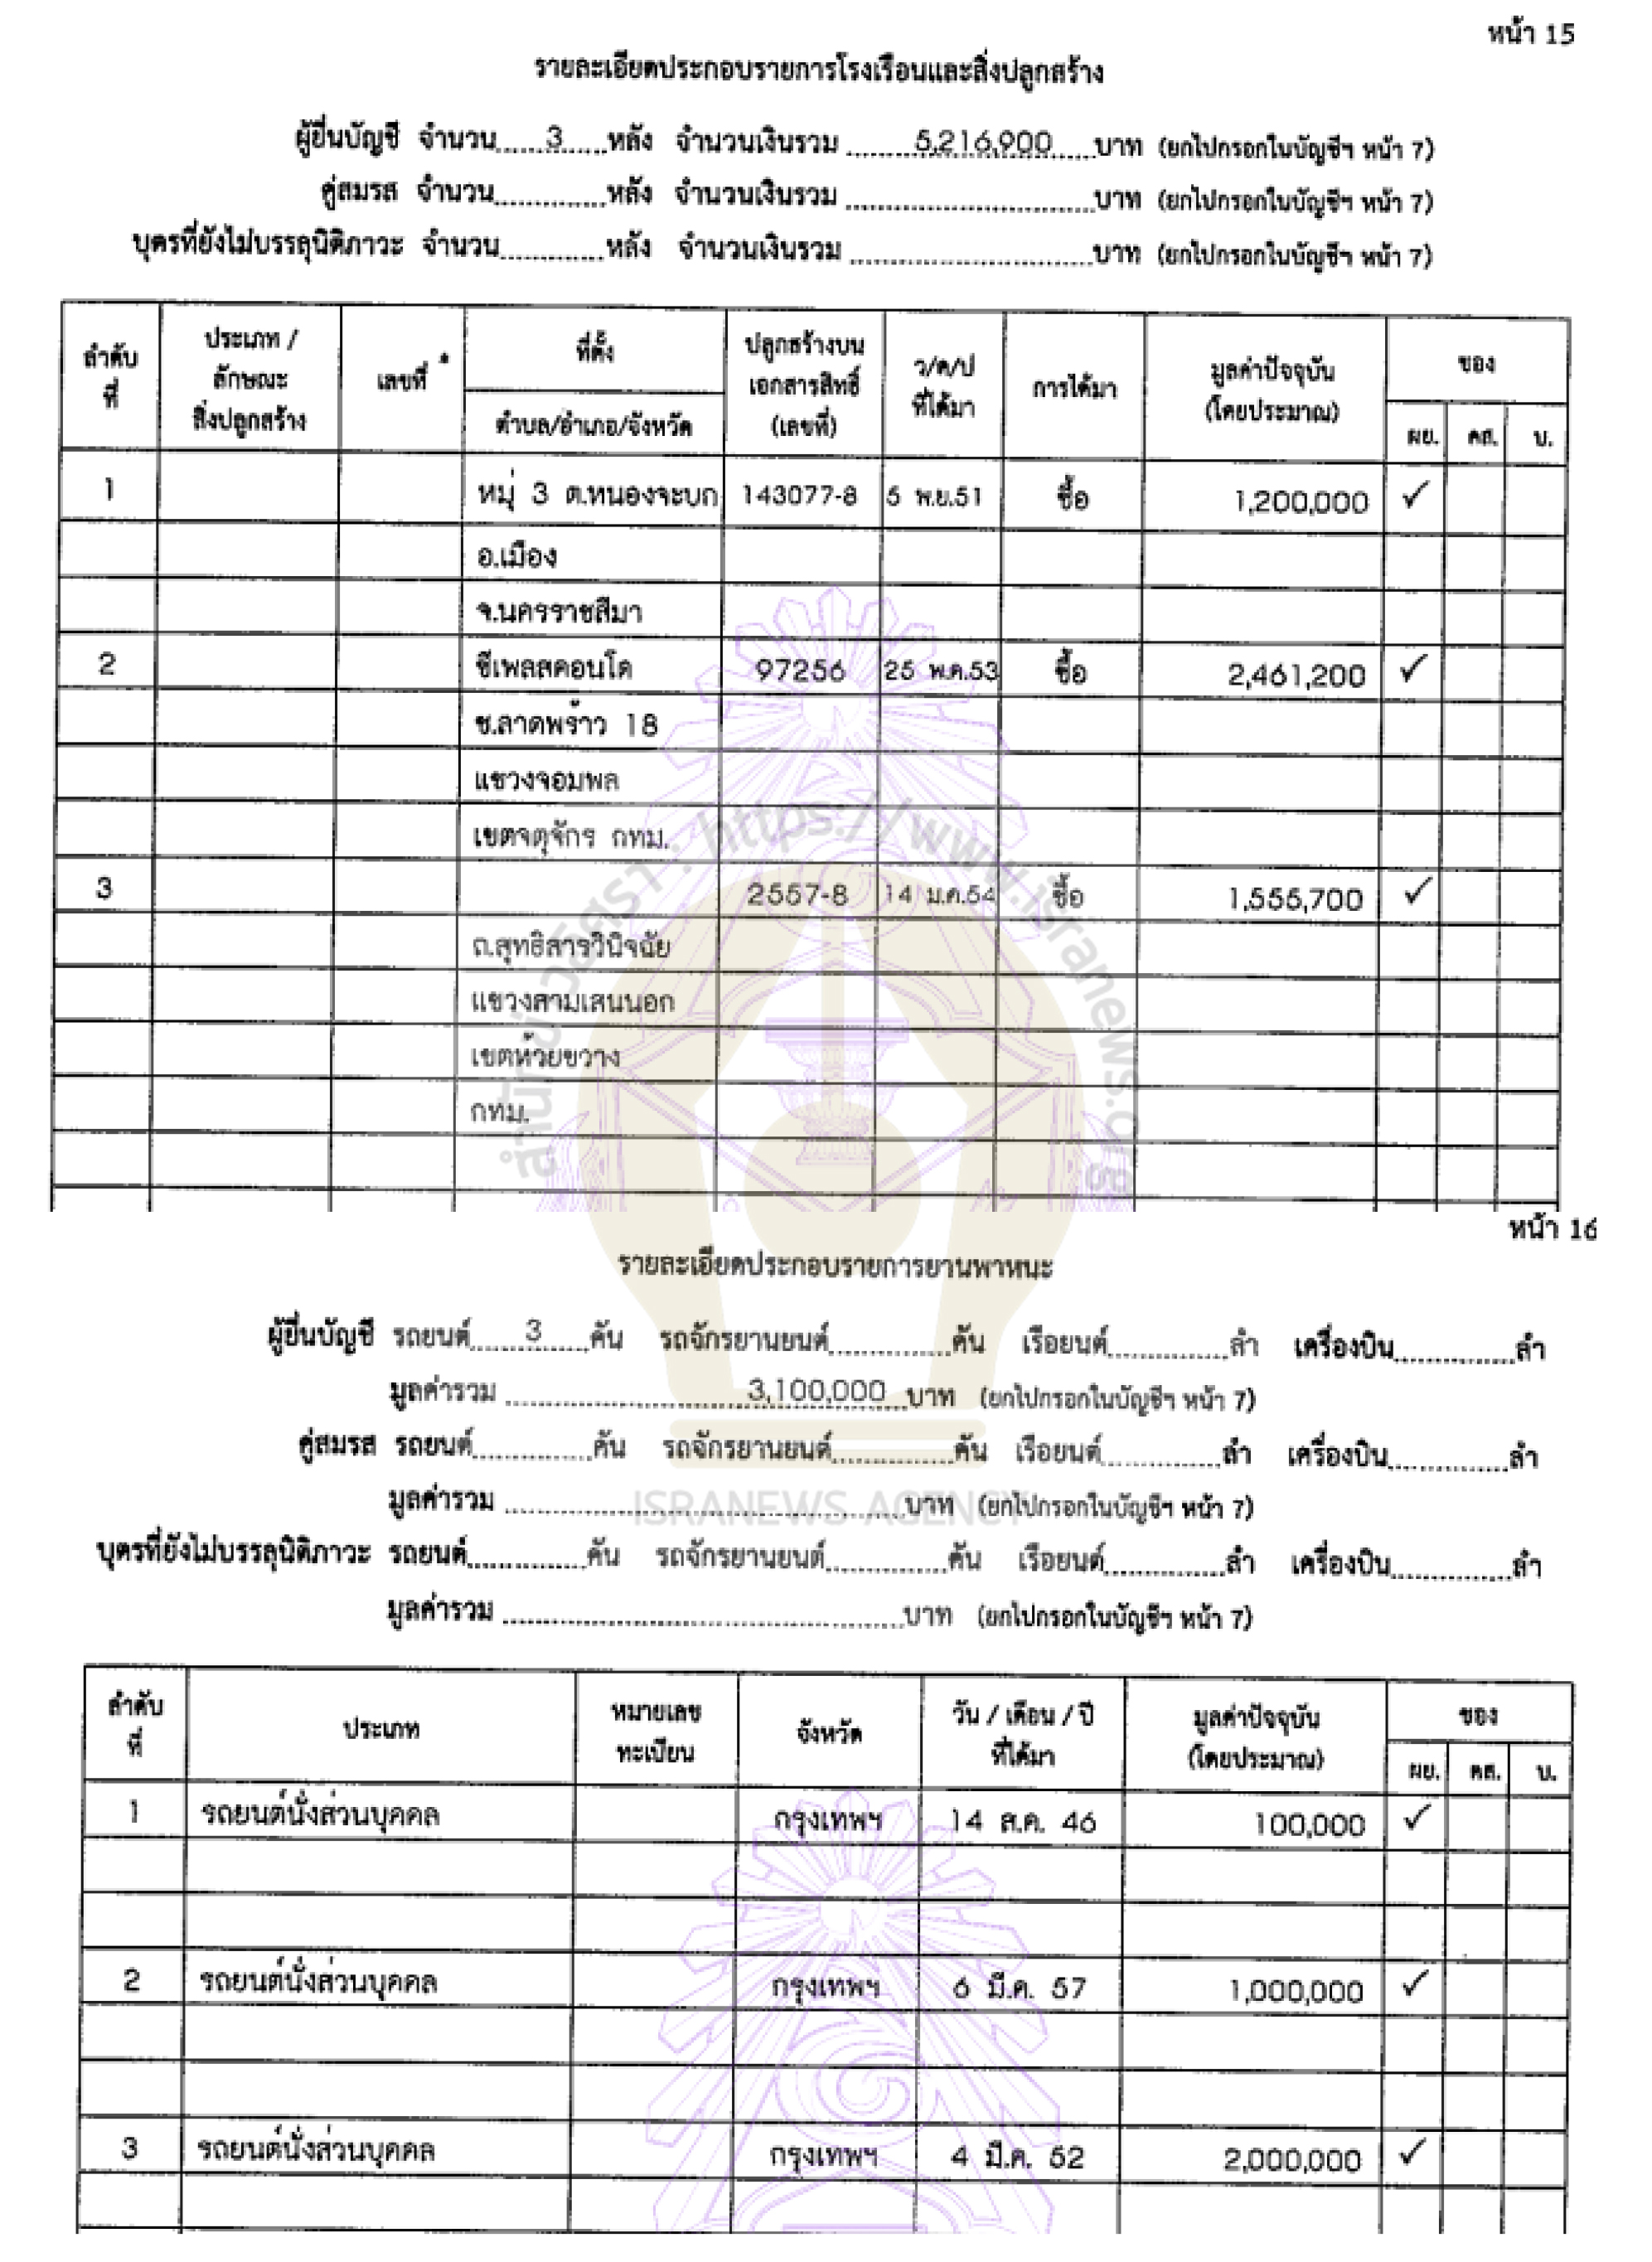 หน้า 15
รายละเอียดประกอบรายการโรงเรือนและสิ่งปลูกสร้าง
ผู้ยื่นบัญชี จำนวน......3......หลัง จำนวนเงินรวม ........5,216,900......บาท (ยกไปกรอกในบัญชีฯ หน้า 7)
คู่สมรส จำนวน..............หลัง จำนวนเงินรวม ..............................บาท (ยกไปกรอกในบัญชีฯ หน้า 7)
บุตรที่ยังไม่บรรลุนิติภาวะ จำนวน.............หลัง จำนวนเงินรวม ..............................บาท (ยกไปกรอกในบัญชีฯ หน้า 7)
ลำดับที่ ประเภท / ลักษณะสิ่งปลูกสร้าง เลขที่ * ที่ตั้ง ตำบล/อำเภอ/จังหวัด ปลูกสร้างบนเอกสารสิทธิ์ (เลขที่) ว/ด/ป ที่ได้มา การได้มา มูลค่าปัจจุบัน (โดยประมาณ) ของ ผย. คส. บ.
1 หมู่ 3 ต.หนองจะบก 143077-8 5 พ.ย.51 ซื้อ 1,200,000 ✓
อ.เมือง
จ.นครราชสีมา
2 ซีเพลสคอนโด 97256 25 พ.ค.53 ซื้อ 2,461,200 ✓
ซ.ลาดพร้าว 18
แขวงจอมพล
เขตจตุจักร กทม.
3 2557-8 14 ม.ค.54 ซื้อ 1,555,700 ✓
ถ.สุทธิสารวินิจฉัย
แขวงสามเสนนอก
เขตห้วยขวาง
กทม.
สำนักข่าวอิศรา : https://www.isranews.org
หน้า 16
รายละเอียดประกอบรายการยานพาหนะ
ผู้ยื่นบัญชี รถยนต์......3......คัน รถจักรยานยนต์..............คัน เรือยนต์..............ลำ เครื่องบิน..............ลำ
มูลค่ารวม ..............................3,100,000...บาท (ยกไปกรอกในบัญชีฯ หน้า 7)
คู่สมรส รถยนต์..............คัน รถจักรยานยนต์..............คัน เรือยนต์..............ลำ เครื่องบิน..............ลำ
มูลค่ารวม ..............................................บาท (ยกไปกรอกในบัญชีฯ หน้า 7)
ISRANEWS AGENCY
บุตรที่ยังไม่บรรลุนิติภาวะ รถยนต์..............คัน รถจักรยานยนต์..............คัน เรือยนต์..............ลำ เครื่องบิน..............ลำ
มูลค่ารวม ..............................................บาท (ยกไปกรอกในบัญชีฯ หน้า 7)
ลำดับที่ ประเภท หมายเลขทะเบียน จังหวัด วัน / เดือน / ปี ที่ได้มา มูลค่าปัจจุบัน (โดยประมาณ) ของ ผย. คส. บ.
1 รถยนต์นั่งส่วนบุคคล กรุงเทพฯ 14 ส.ค. 46 100,000 ✓
2 รถยนต์นั่งส่วนบุคคล กรุงเทพฯ 6 มี.ค. 57 1,000,000 ✓
3 รถยนต์นั่งส่วนบุคคล กรุงเทพฯ 4 มี.ค. 52 2,000,000 ✓